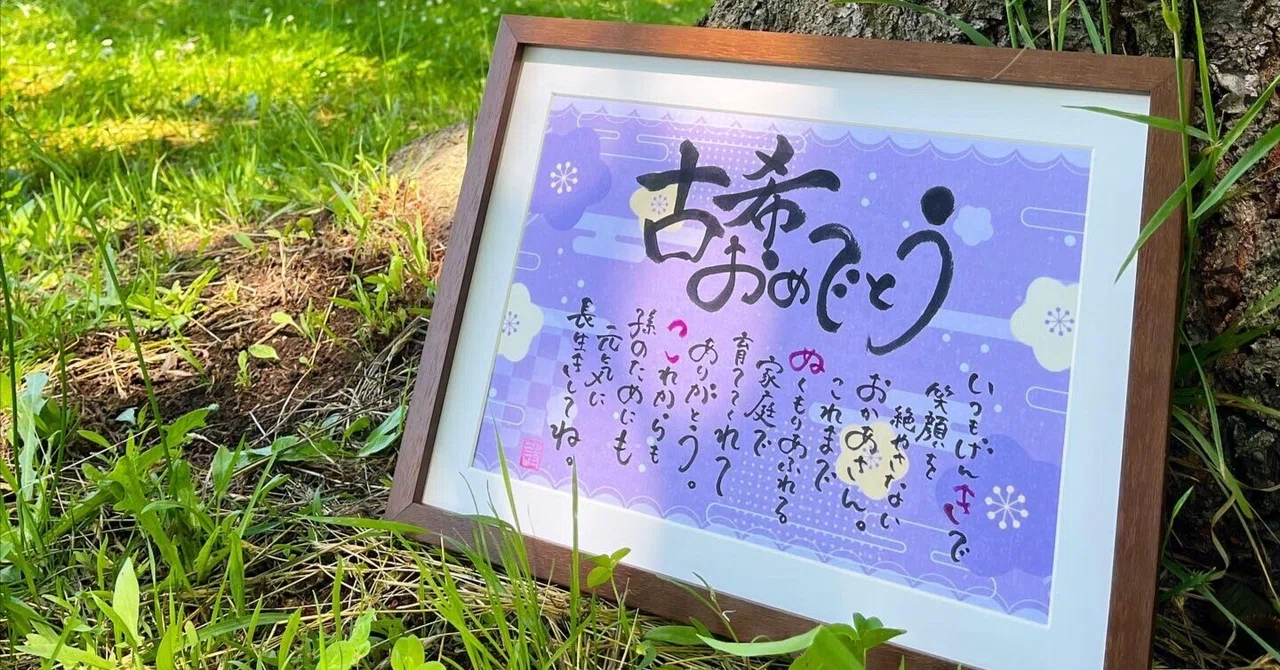 古希
おめでとう
いつもげんきで
笑顔を
絶やさない
おかあさん。
これまで
ぬくもりあふれる
家庭で
育ててくれて
ありがとう。
これからも
孫のためにも
元気に
長生きしてね。